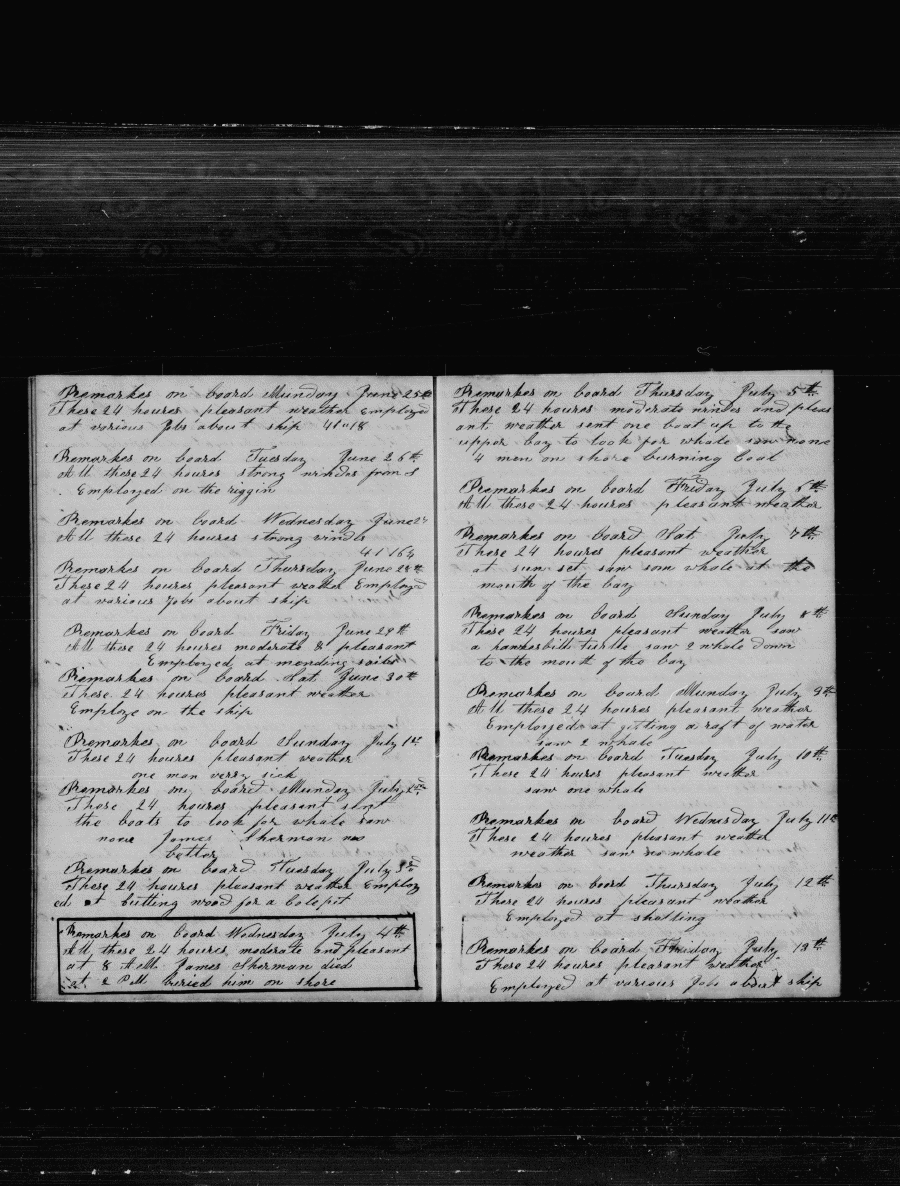 Remarkes on board Munday June 25th
These 24 houres pleasant weather Employed
at various Jobs about ship 41"18
Remarkes on board Tuesday June 26th
All these 24 houres strong windes from S
Employed on the riggin
Remarkes on board Wednesday June 27
All these 24 houres strong winds
Remarkes on board Thursday June 28th
These 24 houres pleasant weather Employed
at various Jobs about ship
Remarkes on board Friday June 29th
All these 24 houres moderate & pleasant
Employed at mending sails
Remarkes on board Sat June 30th
These 24 houres pleasant weather
Employe on the ship
Remarkes on board Sunday July 1st
These 24 houres pleasant weather
one man verry sick
Remarkes on board Munday July 2nd
These 24 houres pleasant
the boats to look for whale saw
none James Sherman no
better
Remarkes on board Tuesday July 3rd
These 24 houres pleasant weather Employ
ed at cutting wood for a cole pit
Remarkes on board Wednesday July 4th
All these 24 houres moderate and pleasant
at 8 A.M. James Sherman died
at 2 P.M. buried him on shore
Remarkes on board Thursday July 5th
These 24 houres moderate windes and pleas
ant weather sent one boat up to the
upper bay to look for whale saw none
4 men on shore burning Coal
Remarkes on board Friday July 6th
All these 24 houres pleasant weather
Remarkes on board Sat July 7th
These 24 houres pleasant weather
at sun set saw som whale at the
mouth of the bay
Remarkes on board Sunday July 8th
These 24 houres pleasant weather saw
a turtle saw 2 whale down
to the mouth of the bay
Remarkes on board Munday July 9th
All these 24 houres pleasant weather
Employed at gitting a raft of water
saw 2 whale
Remarkes on board Tuesday July 10th
These 24 houres pleasant weather
saw one whale
Remarkes on board Wednesday July 11th
These 24 houres pleasant weather
weather saw no whale
Remarkes on board Thursday July 12th
These 24 houres pleasant weather
Employed at
Remarkes on board Friday July 13th
These 24 houres pleasant weather
Employed at various Jobs about ship